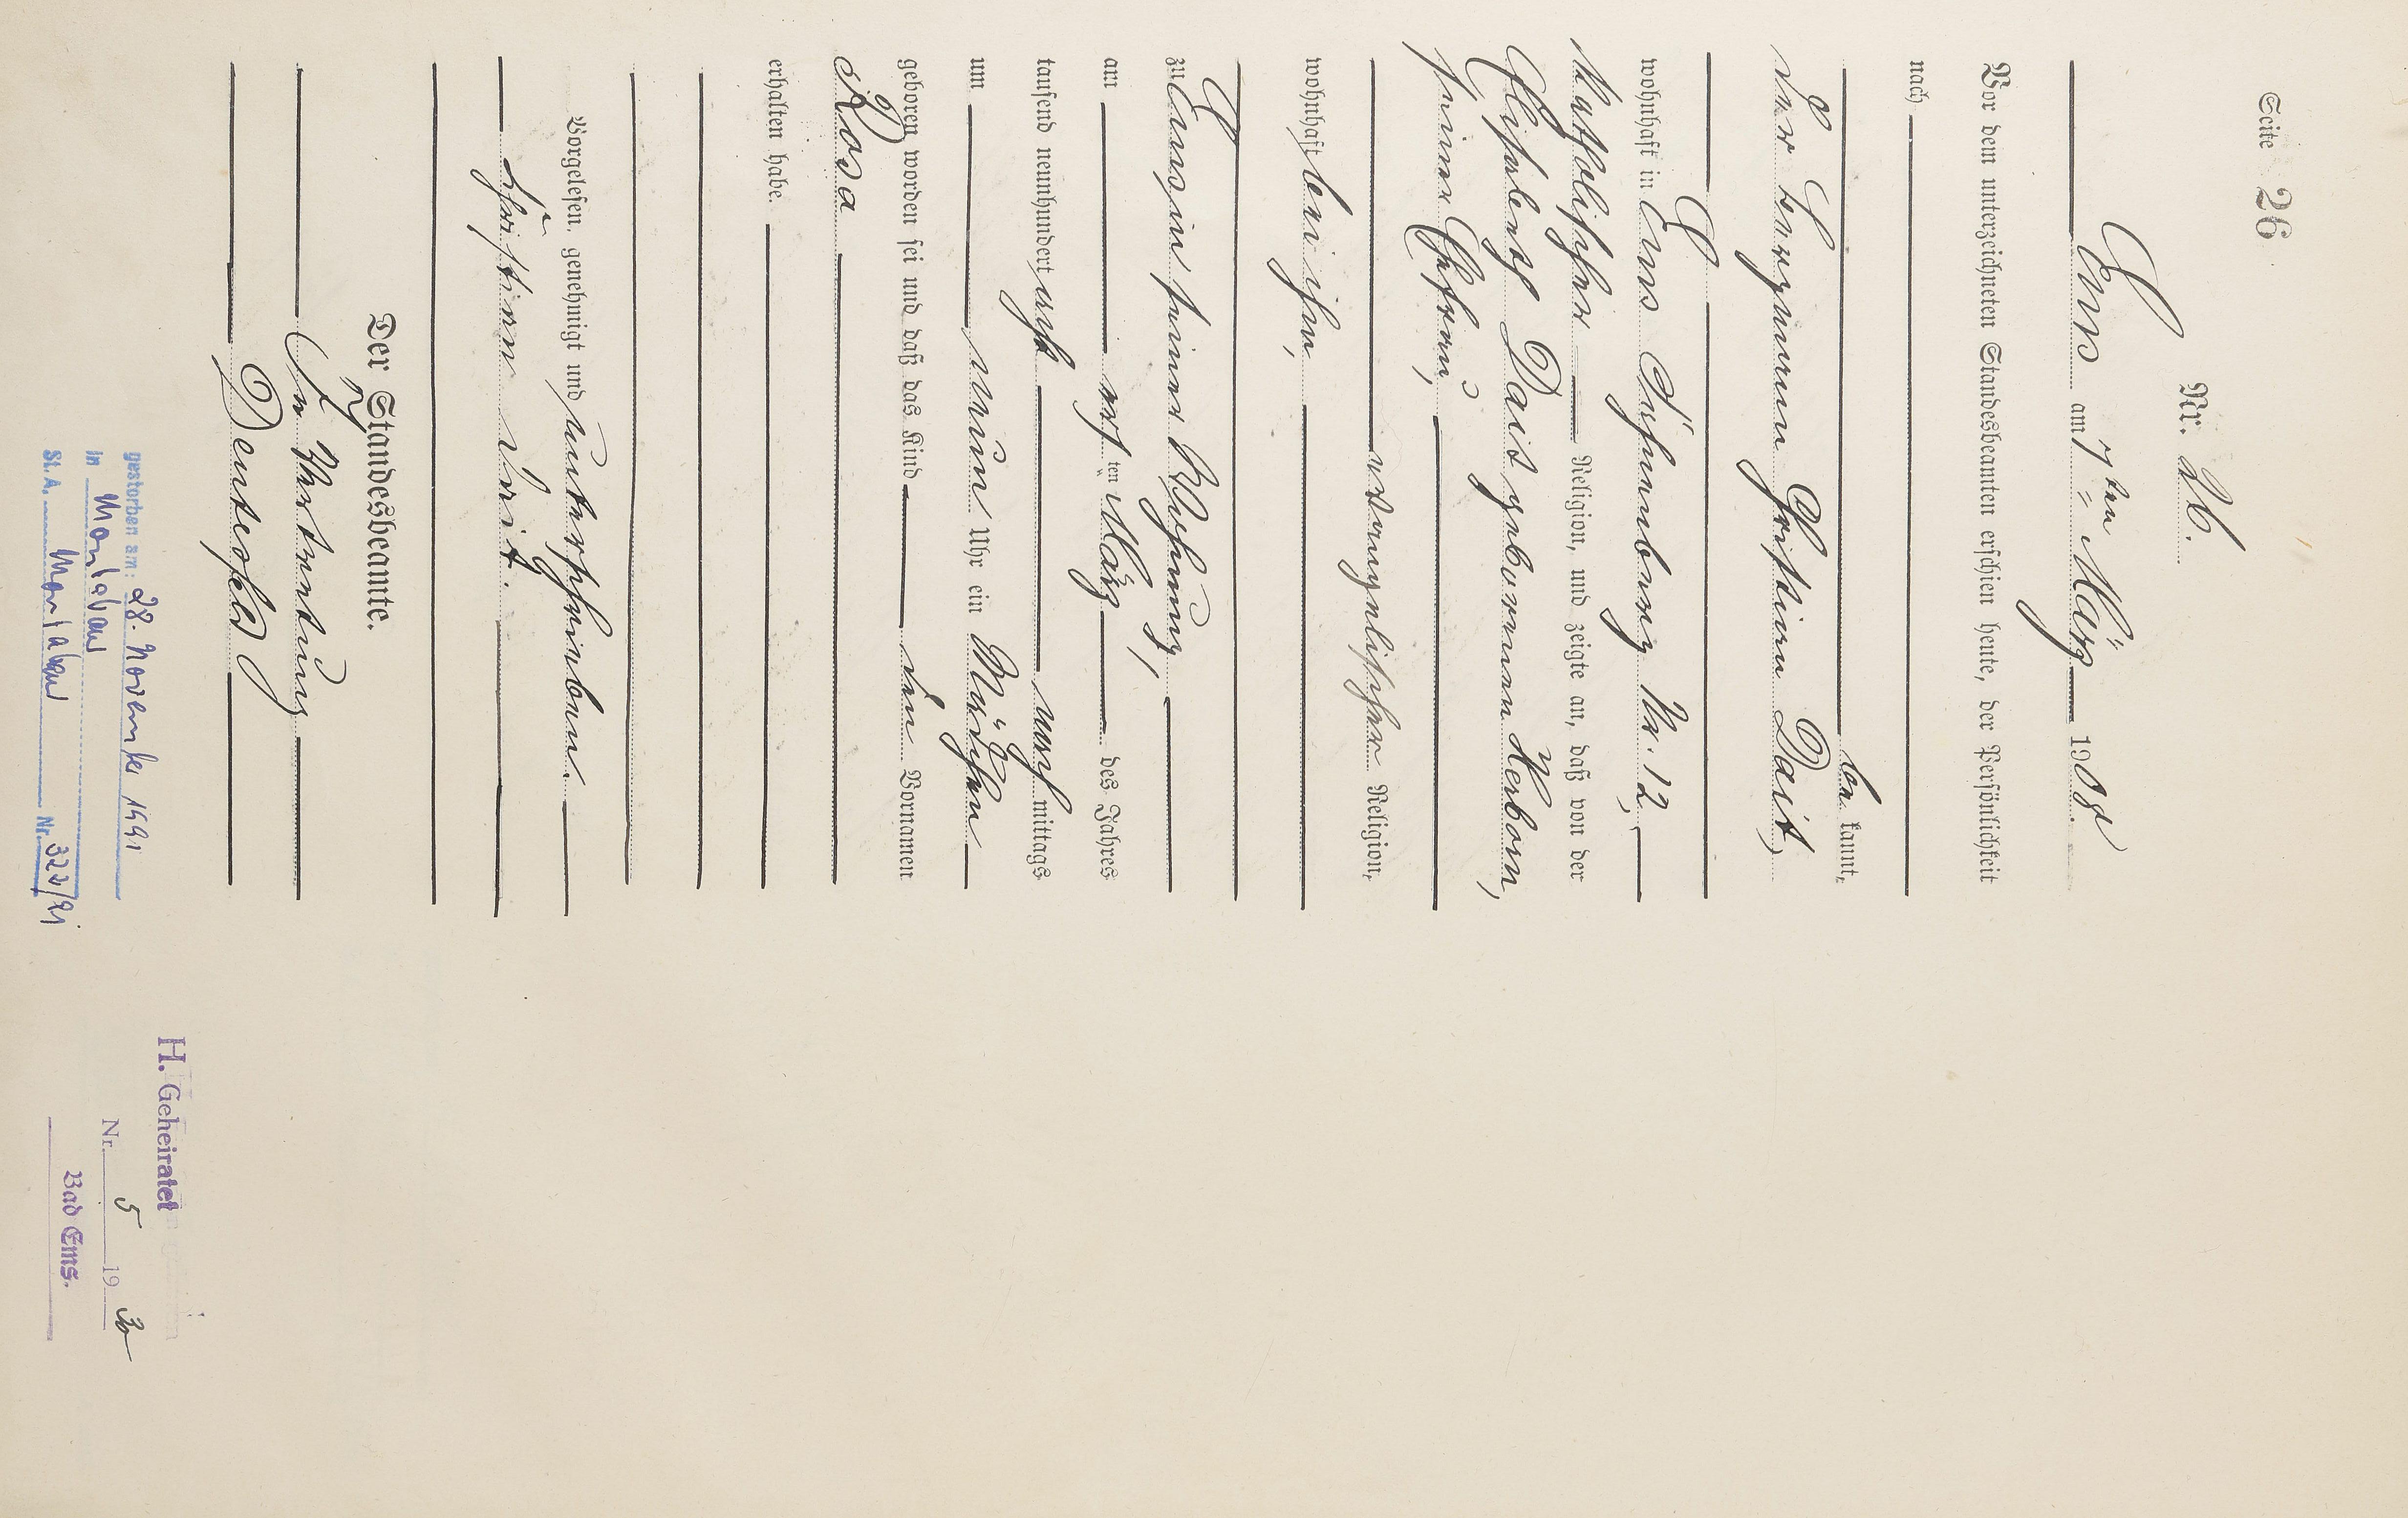 Seite 26
Nr. 26.
Ems am 7ten März 1908.
Vor dem unterzeichneten Standesbeamten erschien heute, der Persönlichkeit
nach
be kannt,
der Bergmann Christian Dait,
wohnhaft in Ems Nr. 12,
katholischer Religion, und zeigte an, daß von der
Elisabeth Dait geborenen Herborn,
seiner Ehefrau,
evangelischer Religion,
wohnhaft bei ihm,
zu Ems in seiner Wohnung,
am ersten März des Jahres
tausend neunhundert acht nach mittags
um neun Uhr ein Mädchen
geboren worden sei und daß das Kind den Vornamen
Rosa
erhalten habe.
Vorgelesen, genehmigt und unterschrieben.
Christian Dait.
Der Standesbeamte.
In Vertretung
gestorben am: 28. November 1991
in Montabaur
St. A. Montabaur Nr. 322/91
H. Geheiratet
Nr. 5 19
Bad Ems.